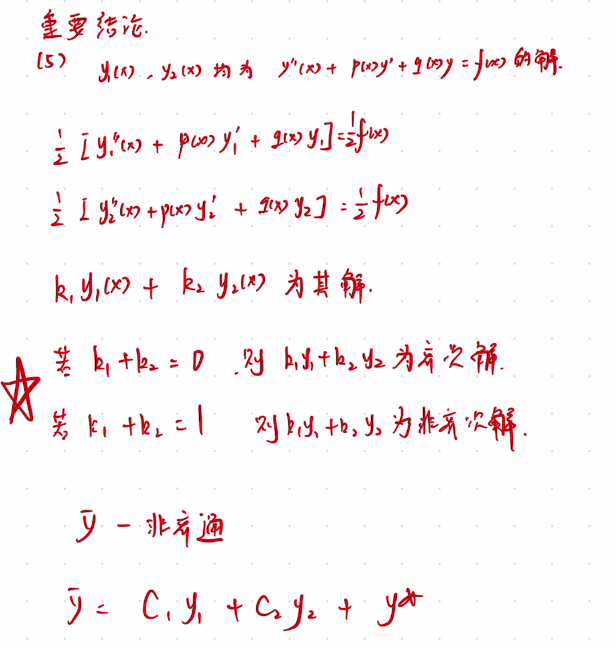 重要结论.
(5) y₁(x), y₂(x) 均为 y''(x) + p(x)y' + q(x)y = f(x) 的解.
½ [y₁''(x) + p(x) y₁' + q(x) y₁] = ½ f(x)
½ [y₂''(x) + p(x) y₂' + q(x) y₂] = ½ f(x)
k₁ y₁(x) + k₂ y₂(x) 为其解.
若 k₁ + k₂ = 0 .则 k₁y₁ + k₂ y₂ 为齐次解.
若 k₁ + k₂ = 1 则 k₁y₁ + k₂ y₂ 为非齐次解.
ȳ — 非齐通
ȳ = C₁ y₁ + C₂ y₂ + y*